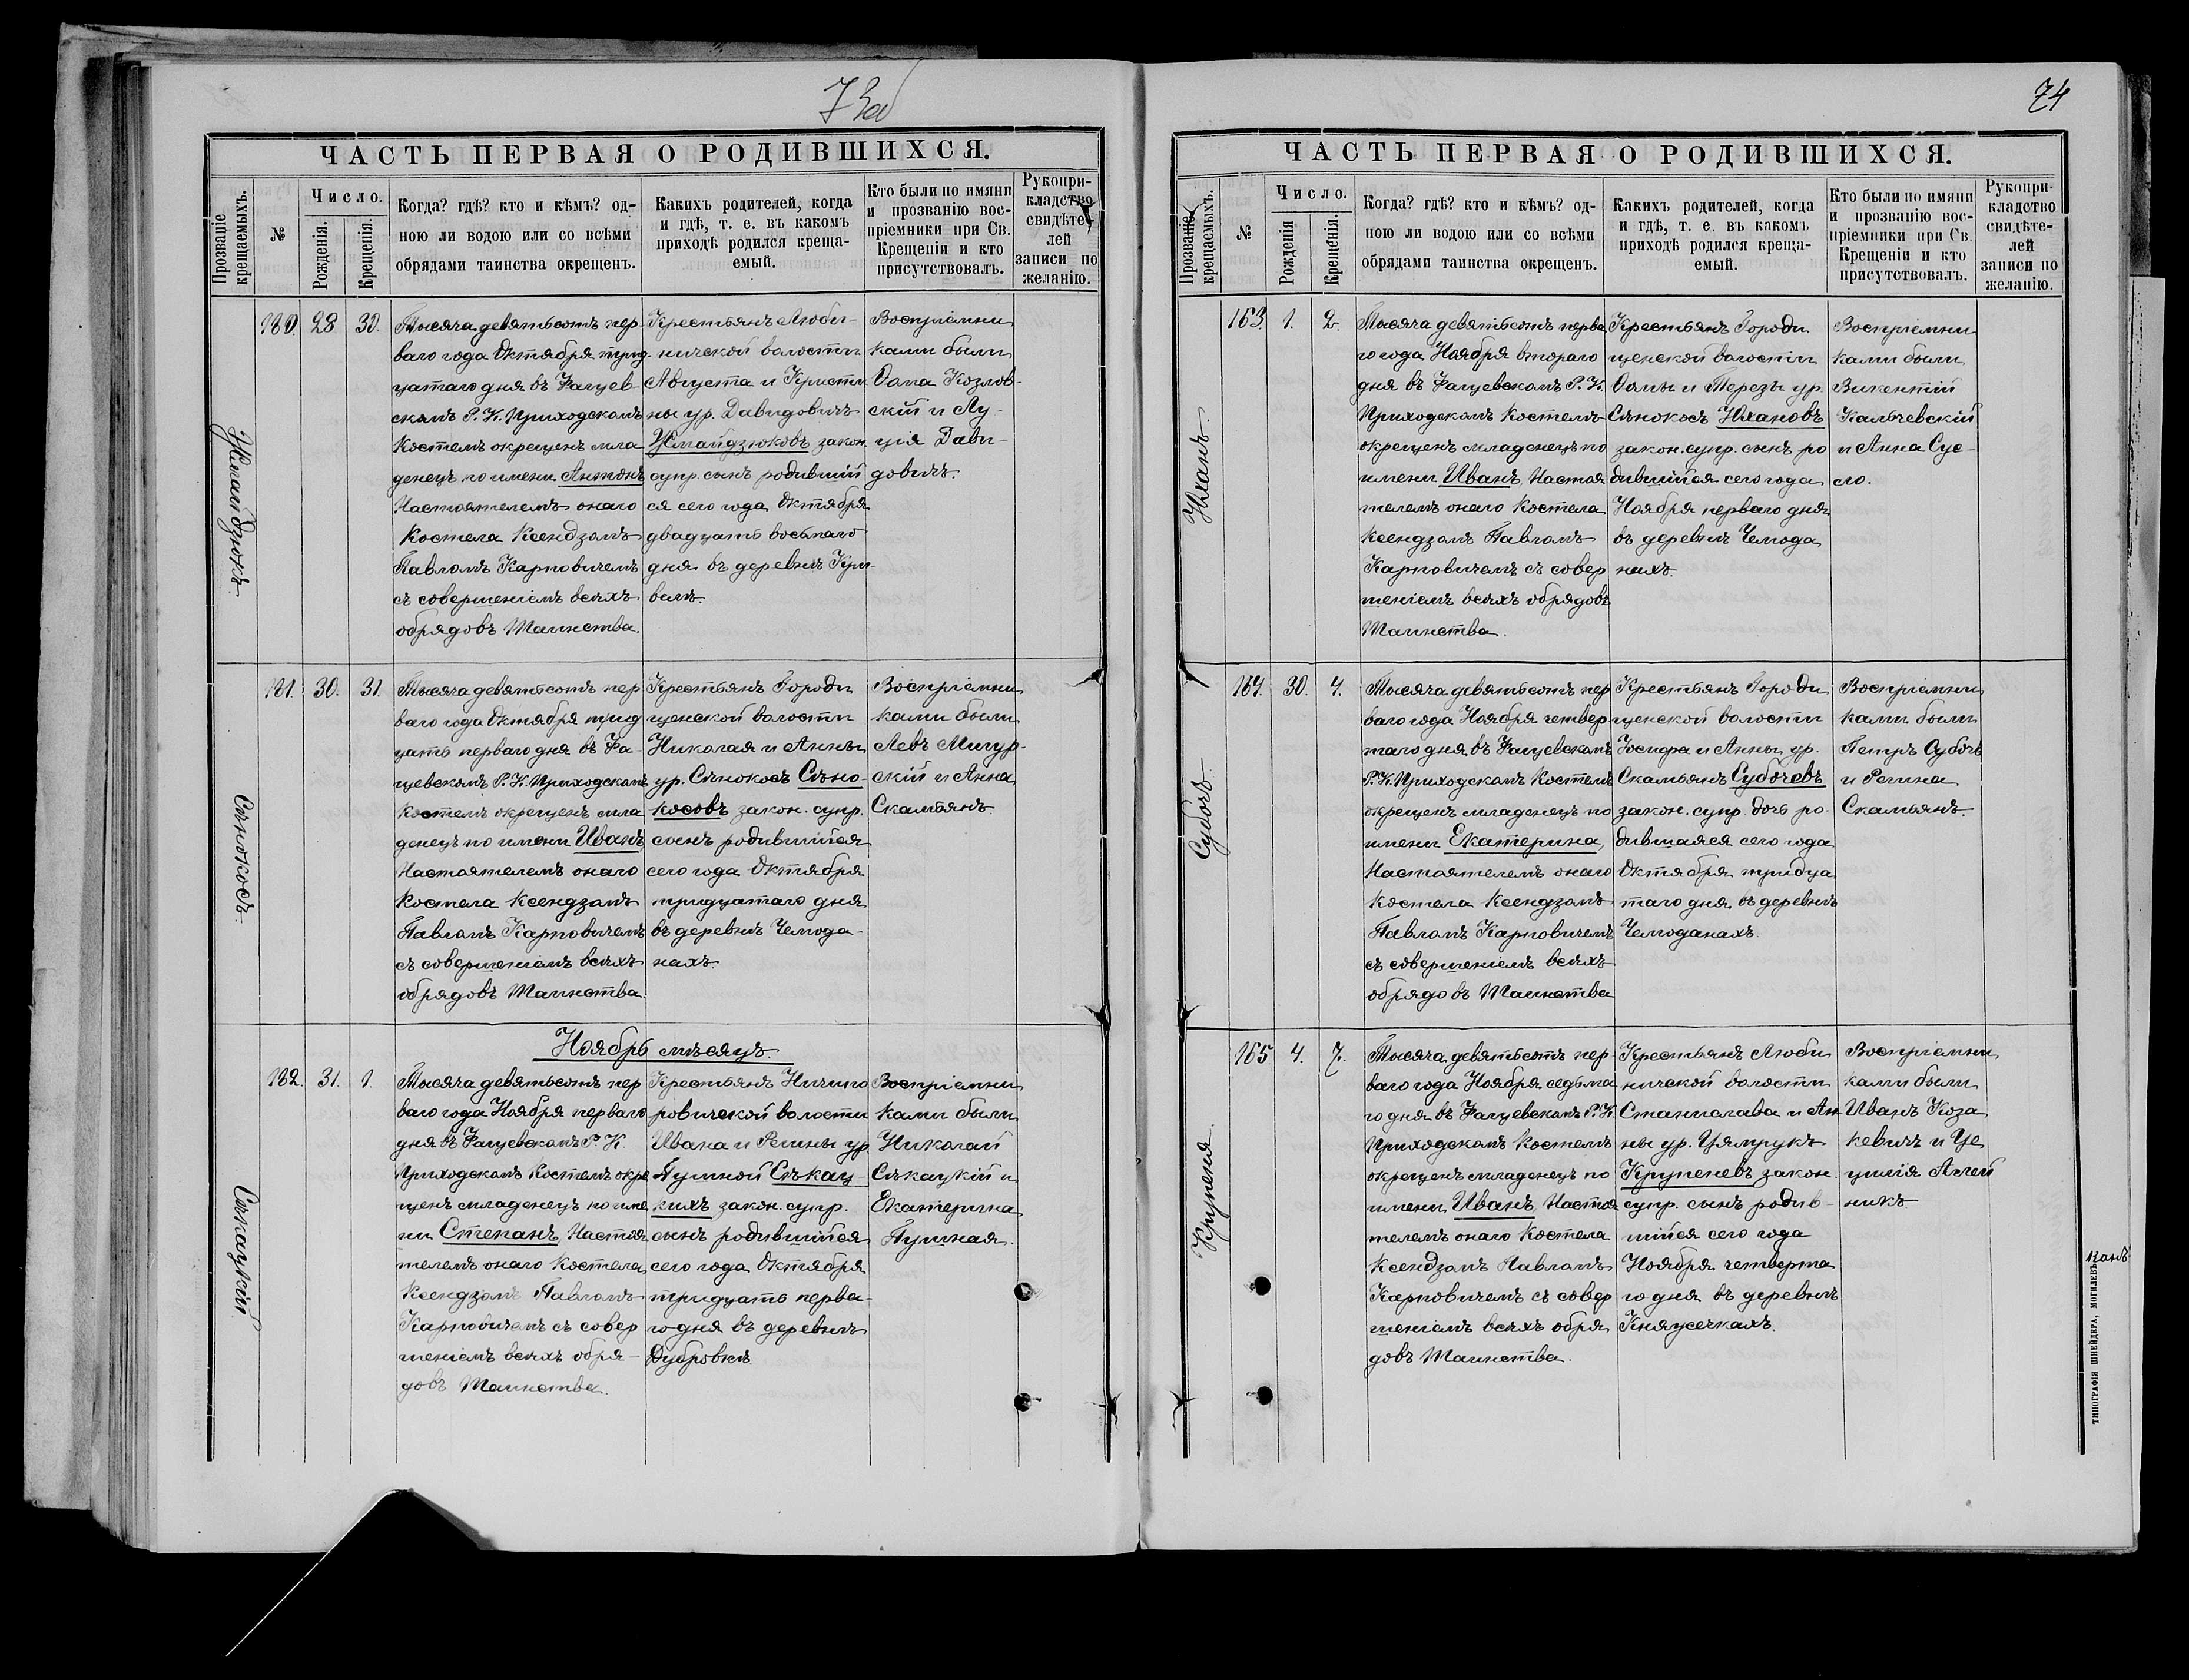 73об
ЧАСТЬ ПЕРВАЯ О РОДИВШИХСЯ.
Прозваніе крещаемыхъ.
№
Число.
Рожденія.
Крещенія.
Когда? гдѣ? кто и кѣмъ? од-
ною ли водою или со всѣми
обрядами таинства окрещенъ.
Какихъ родителей, когда
и гдѣ, т. е. въ какомъ
приходѣ родился креща-
емый.
Кто были по имяни
и прозванію вос-
пріемники при Св.
Крещеніи и кто
присутствовалъ.
Рукопри-
кладство
свидѣте-
лей
записи по
желанію.
Жмайдзюкъ
180. 28 30.
Тысяча девятьсотъ пер-
ваго года Октября трид-
цатаго дня въ Фащев-
скомъ Р. К. Приходскомъ
Костелѣ окрещенъ мла
денецъ по имени Антонъ
Настоятелемъ онаго
Костела Ксендзомъ
Павломъ Карповичемъ
съ совершеніемъ всѣхъ
обрядовъ Таинства.
Крестьянъ Люби-
ничской волости
Августа и Кристи
ны ур. Давидовичъ
Жмайдзюковъ закон.
супр. сынъ родившій
ся сего года Октября
двадцать восьмаго
дня въ деревнѣ Кри-
вилѣ.
Воспріемни
ками были
Ѳома Козлов-
скій и Лу-
ція Дави-
довичъ.
Сѣнокосъ.
181. 30. 31.
Тысяча девятьсотъ пер
ваго года Октября трид
цать перваго дня въ Фа-
щевскомъ Р. К. Приходскомъ
Костелѣ окрещенъ мла
денецъ по имени Иванъ
Настоятелемъ онаго
Костела Ксендзомъ
Павломъ Карповичемъ
съ совершеніемъ всѣхъ
обрядовъ Таинства.
Крестьянъ Городи
щенской волости
Николая и Анны
ур. Сѣнокосъ Сѣно-
косовъ закон. супр.
сынъ родившійся
сего года Октября
тридцатаго дня
въ деревнѣ Чемода-
нахъ.
Воспріемни
ками были
Левъ Мигур-
скій и Анна
Скамьянъ.
Ноябрь мѣсяцъ.
Сѣкацкій
182. 31. 1.
Тысяча девятьсотъ пер
ваго года Ноября перваго
дня въ Фащевскомъ Р. К.
Приходскомъ Костелѣ окре
щенъ младенецъ по име
ни Степанъ, Настоя
телемъ онаго Костела
Ксендзомъ Павломъ
Карповичемъ съ совер
шеніемъ всѣхъ обря-
довъ Таинства.
Крестьянъ Ничипо
ровичской волости
Ивана и Регины ур.
Пушной Сѣкац-
кихъ закон. супр.
сынъ родившійся
сего года Октября
тридцать перва-
го дня въ деревнѣ
Дубровкѣ.
Воспріемни
ками были
Николай
Сѣкацкій и
Екатерина
Пушная.
74
ЧАСТЬ ПЕРВАЯ О РОДИВШИХСЯ.
Прозваніе крещаемыхъ.
№
Число.
Рожденія
Крещенія.
Когда? гдѣ? кто и кѣмъ? од-
ною ли водою или со всѣми
обрядами таинства окрещенъ.
Какихъ родителей, когда
и гдѣ, т. е. въ какомъ
приходѣ родился креща-
емый.
Кто были по имяни
и прозванію вос-
пріемники при Св.
Крещеніи и кто
присутствовалъ.
Рукопри-
кладство
свидѣте-
лей
записи по
желанію.
Юханъ
163. 1. 2.
Тысяча девятьсотъ перва
го года Ноября второго
дня въ Фащевскомъ Р. К.
Приходскомъ Костелѣ
окрещенъ младенецъ по
имени Иванъ, Настоя
телемъ онаго Костела
Ксендзомъ Павломъ
Карповичемъ съ совер
шеніемъ всѣхъ обрядовъ
Таинства.
Крестьянъ Городи
щенской волости
Ѳомы и Терезы ур.
Сѣнокосъ Юхановъ
закон. супр. сынъ ро
дившійся сего года
Ноября перваго дня
въ деревнѣ Чемода
нахъ.
Воспріемни
ками были
Викентій
Кальчевскій
и Анна Сус-
ло.
Субочъ
164. 30. 4.
Тысяча девятьсотъ пер
ваго года Ноября четвер
таго дня въ Фащевскомъ
Р. К. Приходскомъ Костелѣ
окрещенъ младенецъ по
имени Екатерина,
Настоятелемъ онаго
Костела Ксендзомъ
Павломъ Карповичемъ
съ совершеніемъ всѣхъ
обрядовъ Таинства
Крестьянъ Городи
щенской волости
Іосифа и Анны ур.
Скамьянъ Субочевъ
закон. супр. дочь ро-
дившаяся сего года
Октября тридца
таго дня въ деревнѣ
Чемоданахъ.
Воспріемни
ками были
Петръ Субочъ
и Регина
Скамьянъ.
Крупеня
165 4. 7.
Тысяча девятьсотъ пер-
ваго года Ноября седьма
го дня въ Фащевскомъ Р. К.
Приходскомъ Костелѣ
окрещенъ младенецъ по
имени Иванъ, Настоя
телемъ онаго Костела
Ксендзомъ Павломъ
Карповичемъ съ совер
шеніемъ всѣхъ обря
довъ Таинства.
Крестьянъ Люби
ничской волости
Станислава и Ан
ны ур. Цямрукъ
Крупеневъ закон.
супр. сынъ родив-
шійся сего года
Ноября четверта
го дня въ деревнѣ
Княжечкахъ.
Воспріемни
ками были
Иванъ Коза
кевичъ и Це
цилія Алей
никъ.
канъ
ТИПОГРАФІЯ ШНЕЙДЕРА, МОГИЛЕВЪ